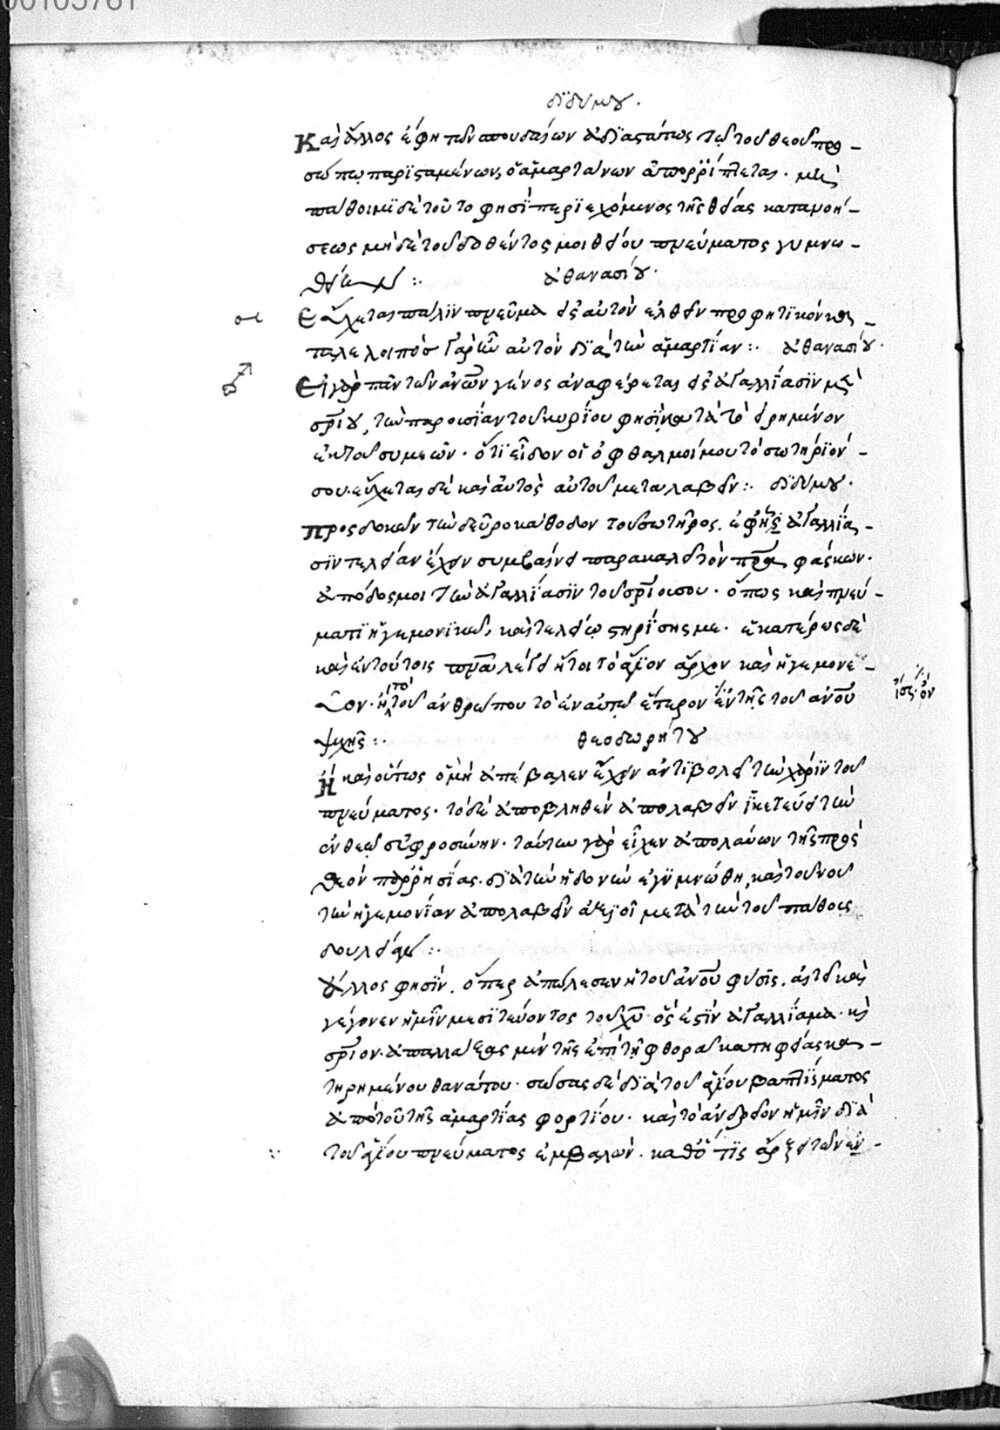 00103781
διδύμου.
Καὶ ἄλλος ἔφη τῶν σπουδαίων ἀδιαστάτως τῷ τοῦ θεοῦ προ-
σώπῳ παρισταμένων, ὁ ἁμαρτάνων ἀπορρίπτεται. μὴ
πάθοιμι δὲ τοῦτο φησὶ περιεχόμενος τῆς θείας κατανοή-
σεως μηδὲ τοῦ δοθέντος μοι θείου πνεύματος γυμνω-
θείην :. ἀθανασίου.
Εὔχεται πάλιν πνεῦμα εἰς αὐτὸν ἐλθεῖν προφητικὸν κα-
ταλελοιπὸς γὰρ ἦν αὐτὸν διὰ τὴν ἁμαρτίαν :. ἀθανασίου.
Εἰ γὰρ πάντων ἀνων γένος ἀναφέρεται εἰς ἀγαλλίασιν
σριου, τὴν παρουσίαν τοῦ κυρίου φησὶ κατὰ τὸ εἰρημένον
ἐκ τοῦ συμεών. ὅτι εἶδον οἱ ὀφθαλμοί μου τὸ σωτήριόν
σου. εὔχεται δὲ καὶ αὐτὸς αὐτοῦ μεταλαβεῖν :. διδύμου.
Προσδοκῶν τὴν δεῦρο κάθοδον τοῦ σωτῆρος. ἐφ' ἧς ἀγαλλία-
σιν τελείαν ἔχειν συμβαίνει παρακαλεῖ τὸν πρα φάσκων.
ἀπόδος μοι τὴν ἀγαλλίασιν τοῦ σριου σου. ὅπως καὶ πνεύ-
ματι ἡγεμονικῷ, καὶ τελείῳ στηρίσῃς με. ἑκατέρως δὲ
καὶ ἐν τούτοις πνα λέγει ἤτοι τὸ ἅγιον ἄρχον καὶ ἡγεμονεῦ-
ον. ἢ τὸ τοῦ ἀνθρώπου τὸ ἐν αὐτῷ ἕτερον ἐν τῆς τοῦ ἀνου
ἴσ. ὂν
ψχῆς :. θεοδωρήτου
Ἢ καὶ οὕτως ὃ μὴ ἀπέβαλεν ἔχειν ἀντιβολεῖ τὴν χάριν τοῦ
πνεύματος. τὸ δὲ ἀποβληθὲν ἀπολαβεῖν ἱκετεύει τὴν
ἐν θεῷ σεφροσύνην. ταύτην γὰρ εἶχεν ἀπολαύων τῆς πρὸς
θεὸν παρρησίας. διὰ τὴν ἡδονὴν ἐγυμνώθη, καὶ τοῦ νοῦ
τὴν ἡγεμονίαν ἀπολαβεῖν ἀξιοῖ μετὰ τὴν τοῦ πάθους
δουλείαν :.
Ἄλλος φησὶν. ὅπερ ἀπώλεσεν ἡ τοῦ ἀνου φύσις. αἰτεῖ καὶ
γέγονεν ἡμῖν μεσιτεύοντος τοῦ χυ. ὅς ἐστιν ἀγαλλίαμα. κὶ
σριον. ἀπαλλάξας μὲν τῆς ἐπὶ τῇ φθορᾷ κατηφείας κα-
τηρημένου θανάτου. σώσας δὲ διὰ τοῦ ἁγίου βαπτίσματος
ἀπὸ τοῦ τῆς ἁμαρτίας φορτίου. καὶ τὸ ἀνδρεῖον ἡμῖν διὰ
τοῦ ἁγίου πνεύματος ἐμβαλών. καθό τις ἄρξει τῶν ἐν-